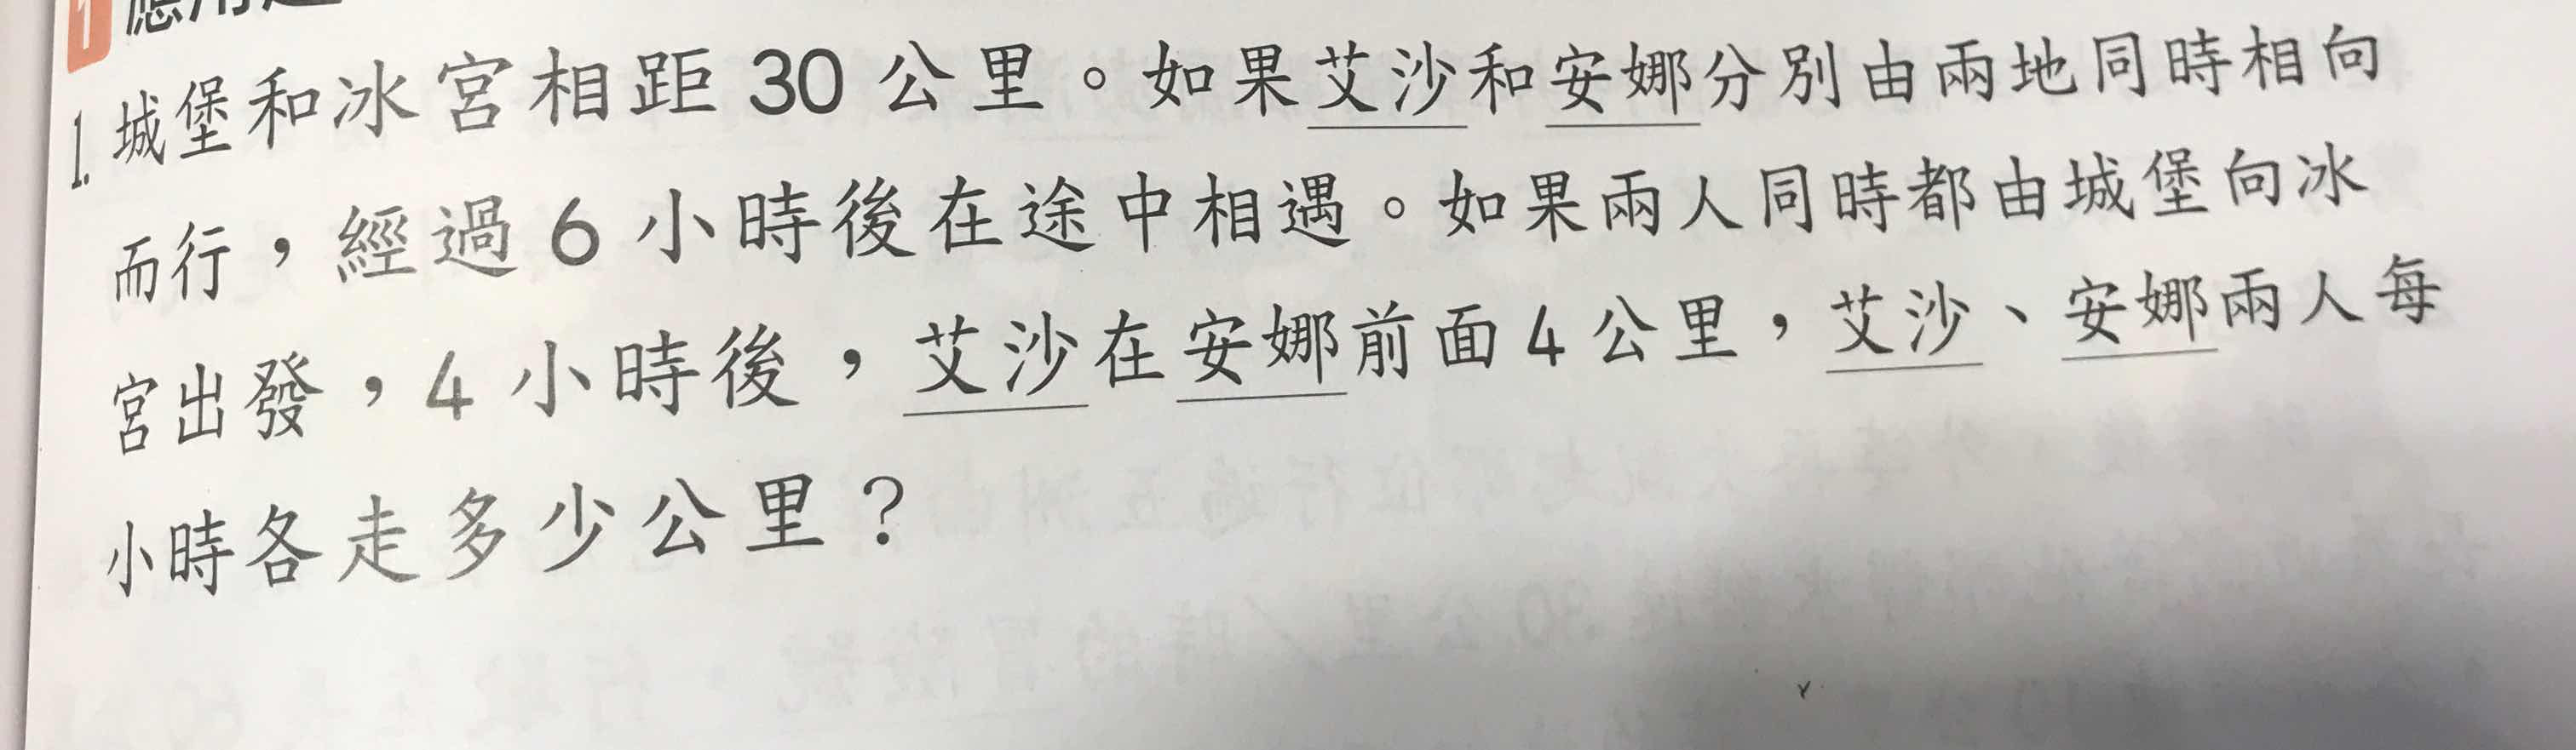 1 應用題
1. 城堡和冰宮相距 30 公里。如果艾沙和安娜分別由兩地同時相向
而行，經過 6 小時後在途中相遇。如果兩人同時都由城堡向冰
宮出發，4 小時後，艾沙在安娜前面 4 公里，艾沙、安娜兩人每
小時各走多少公里？